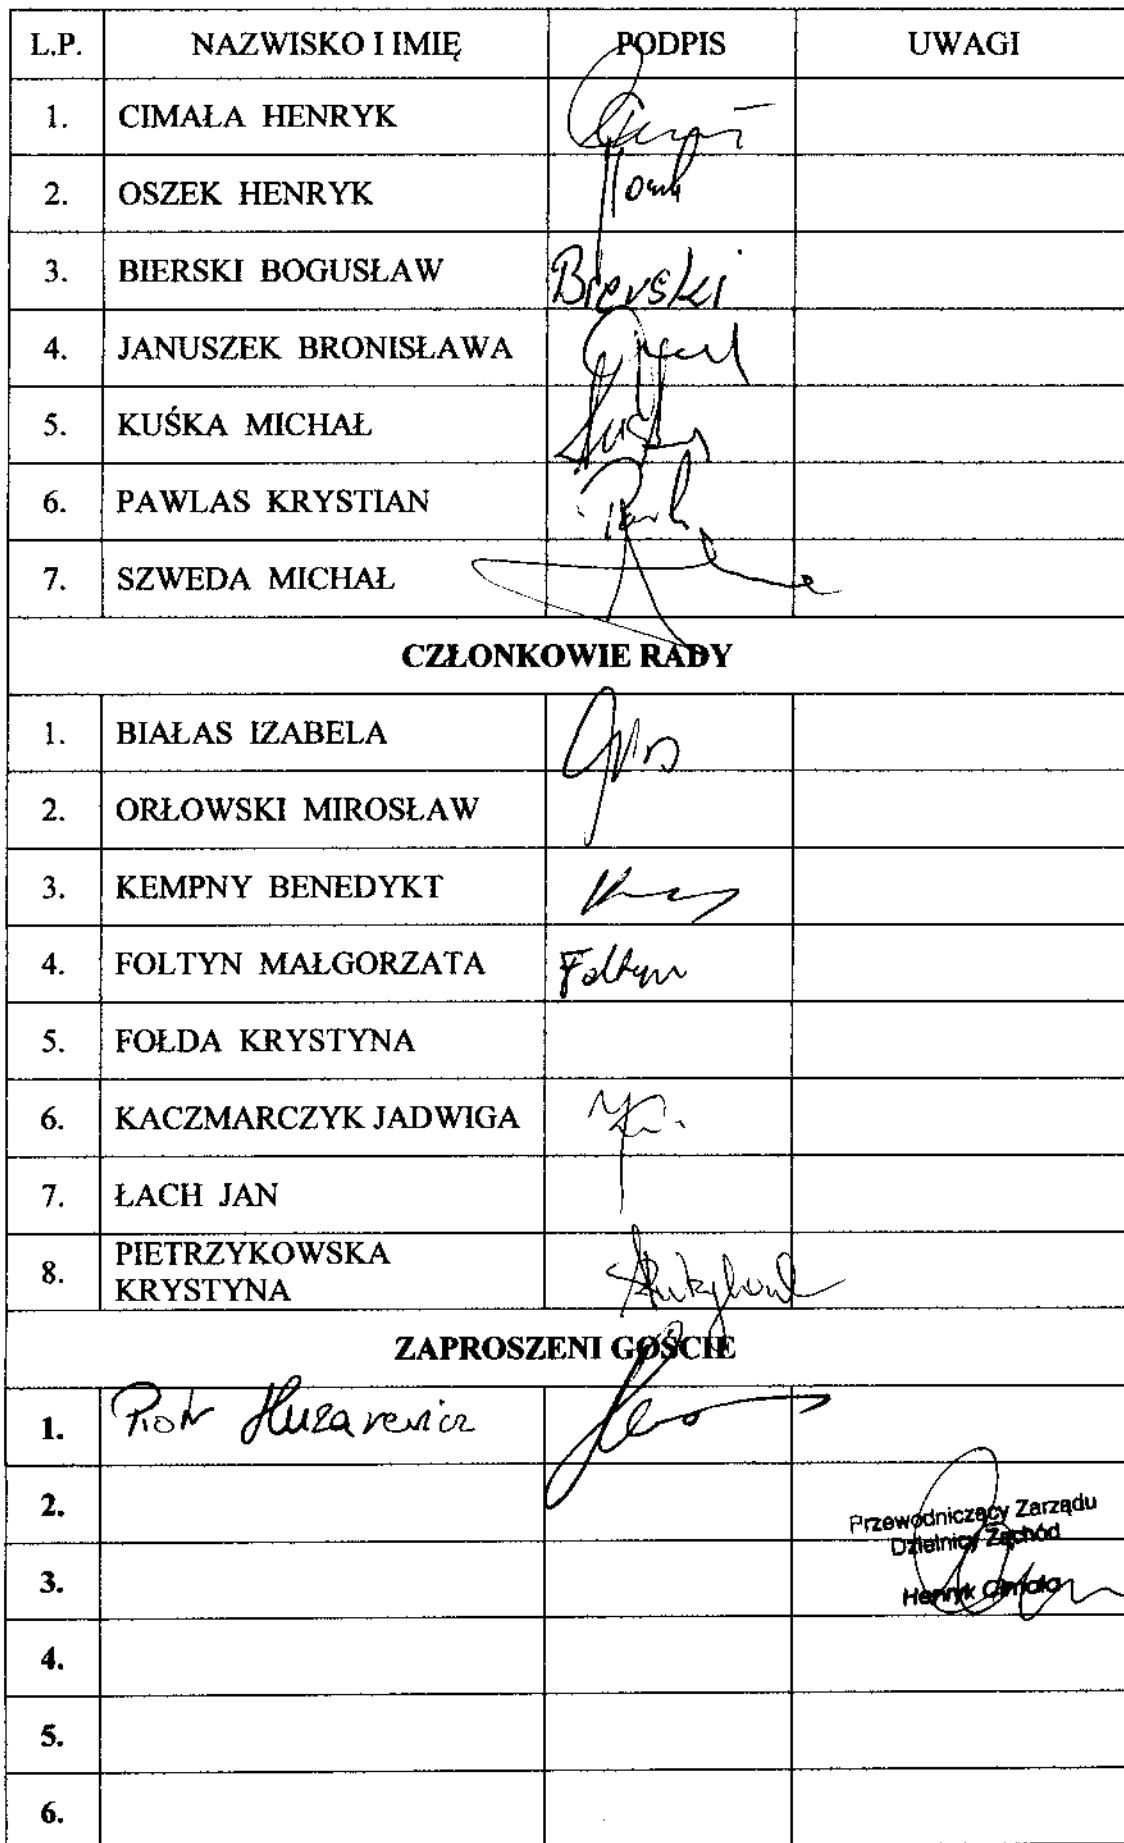 L.P. NAZWISKO I IMIĘ PODPIS UWAGI
1. CIMAŁA HENRYK
2. OSZEK HENRYK
3. BIERSKI BOGUSŁAW Bierski
4. JANUSZEK BRONISŁAWA
5. KUŚKA MICHAŁ
6. PAWLAS KRYSTIAN
7. SZWEDA MICHAŁ
CZŁONKOWIE RADY
1. BIAŁAS IZABELA
2. ORŁOWSKI MIROSŁAW
3. KEMPNY BENEDYKT
4. FOLTYN MAŁGORZATA Foltyn
5. FOŁDA KRYSTYNA
6. KACZMARCZYK JADWIGA
7. ŁACH JAN
8. PIETRZYKOWSKA
KRYSTYNA
ZAPROSZENI GOŚCIE
1. Piotr Huzarewicz
2.
Przewodniczący Zarządu
Dzielnicy Zachód
3.
Henryk Cimała
4.
5.
6.